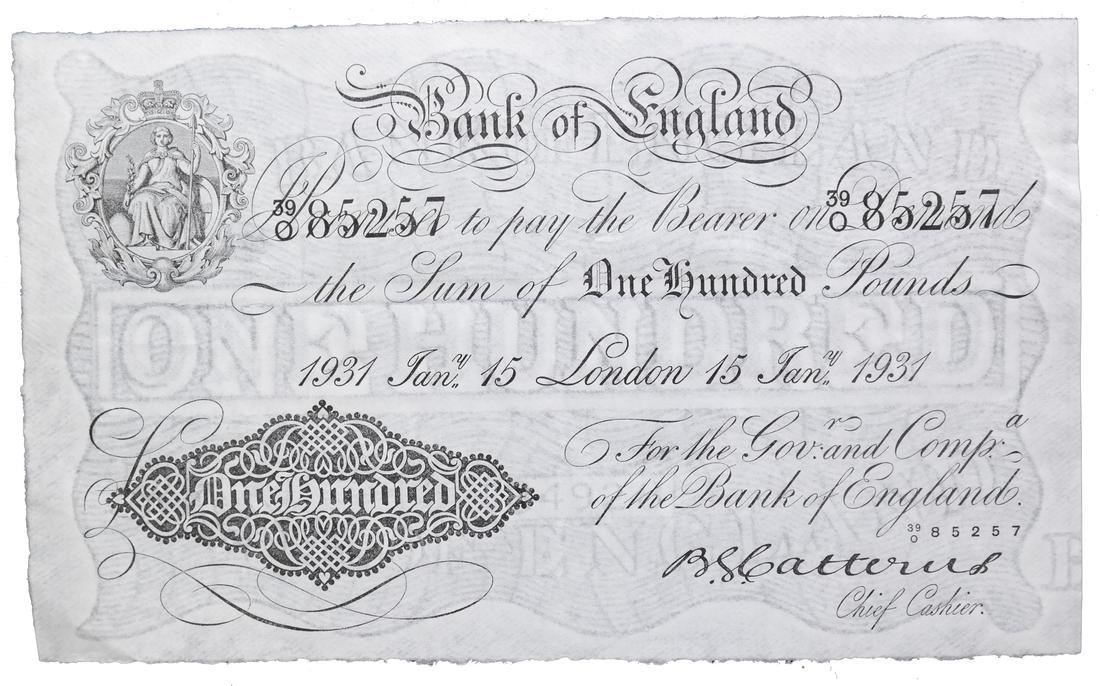 Bank of England
39/0 85257 39/0 85257
I Promise to pay the Bearer on Demand
the Sum of One Hundred Pounds
ONE HUNDRED
1931 Jany. 15 London 15 Jany. 1931
For the Govr. and Compa.
of the Bank of England.
£ One Hundred
39/0 85257
B.G. Catterns
Chief Cashier.